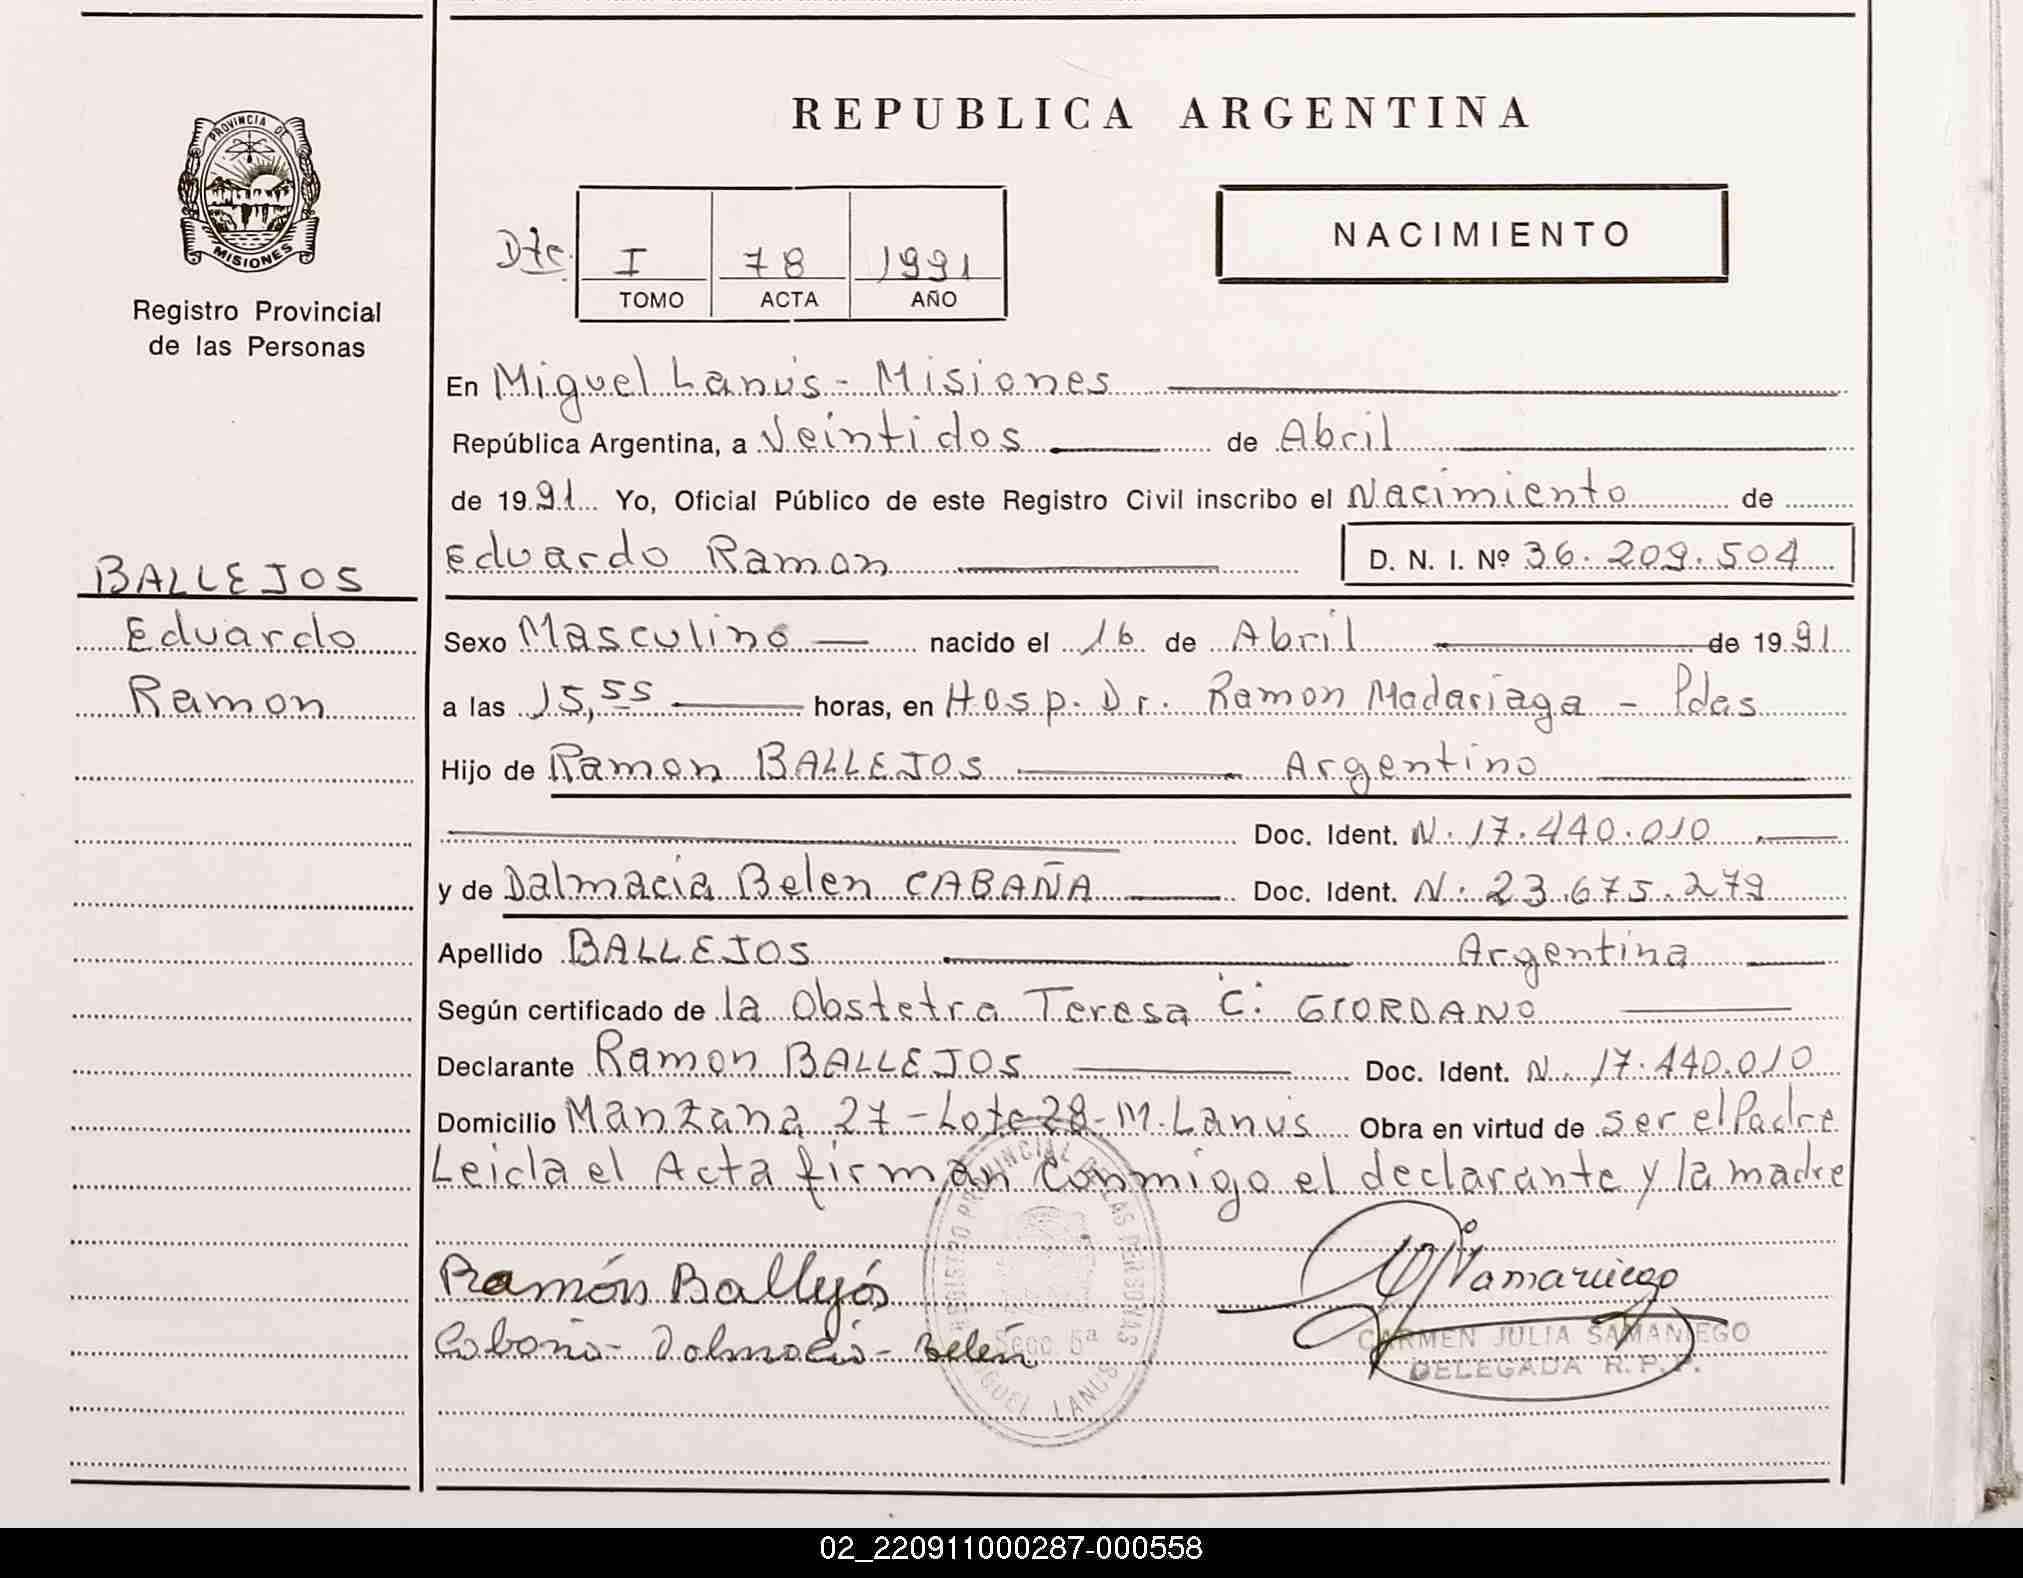 REPUBLICA ARGENTINA
PROVINCIA DE
MISIONES
Registro Provincial
de las Personas
NACIMIENTO
Dto. I 78 1991
TOMO ACTA AÑO
En Miguel Lanús - Misiones
República Argentina, a Veintidos de Abril
de 1991 Yo, Oficial Público de este Registro Civil inscribo el Nacimiento de
Eduardo Ramon D. N. I. Nº 36.209.504
BALLEJOS
Eduardo
Ramon
Sexo Masculino nacido el 16 de Abril de 1991
a las 15,55 horas, en Hosp. Dr. Ramon Madariaga - Pdas
Hijo de Ramon BALLEJOS Argentino
Doc. Ident. N. 17.440.010
y de Dalmacia Belen CABAÑA Doc. Ident. N. 23.675.279
Apellido BALLEJOS Argentina
Según certificado de la Obstetra Teresa C. GIORDANO
Declarante Ramon BALLEJOS Doc. Ident. N. 17.440.010
Domicilio Manzana 27 - Lote 28 - M. Lanús Obra en virtud de ser el Padre
Leida el Acta firman Conmigo el declarante y la madre
Ramón Ballejós
Cabaña - Dalmacia - Belén
REGISTRO PROVINCIAL DE LAS PERSONAS
Secc. 5ª
MIGUEL LANUS
CARMEN JULIA SAMANIEGO
DELEGADA R. P. P.
02_220911000287-000558